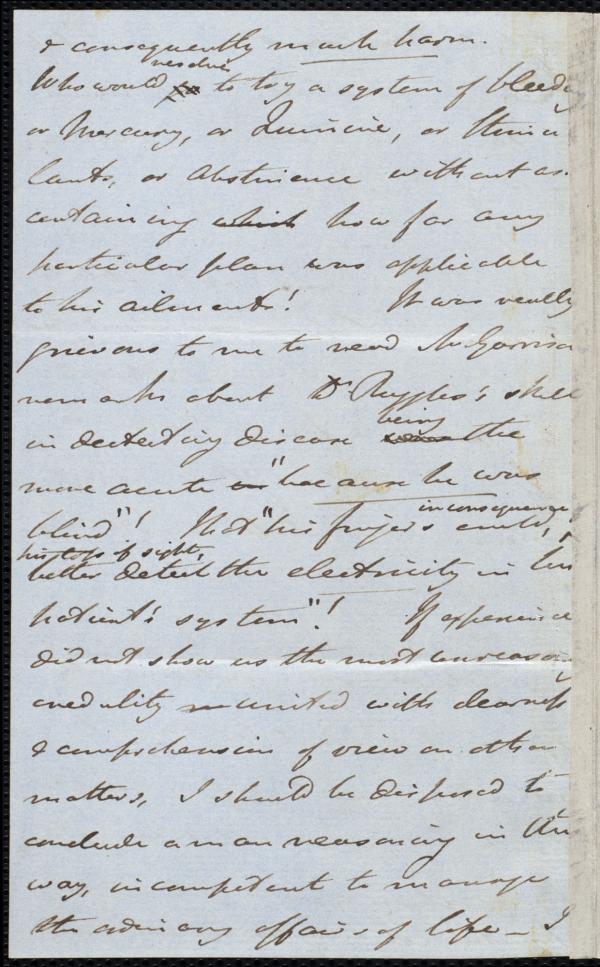 & consequently much harm.
Who would resolve to try a system of bleedg
or Mercury, or Quinine, or Stimu
lants, or Abstinence without as-
certaining which how far any
particular plan was applicable
to his ailments! It was really
grievous to me to read Mr Garrison
remarks about Dr Ruggles's skill
being
in detecting disease the
more acute "because he was
in consequence
blind"! That "his fingers could,
his loss of sight,
better detect the electricity in his
patient's system"! If experience
did not show us the most unreasong
credulity united with clearness
& comprehension of view on other
matters, I should be disposed to
conclude a man reasoning in this
way, incompetent to manage
the ordinary affairs of life — I